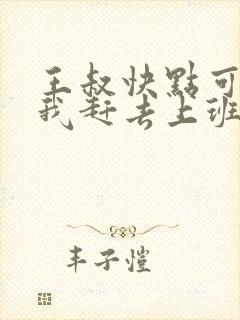 王叔快點可
我赶去上班
丰子愷